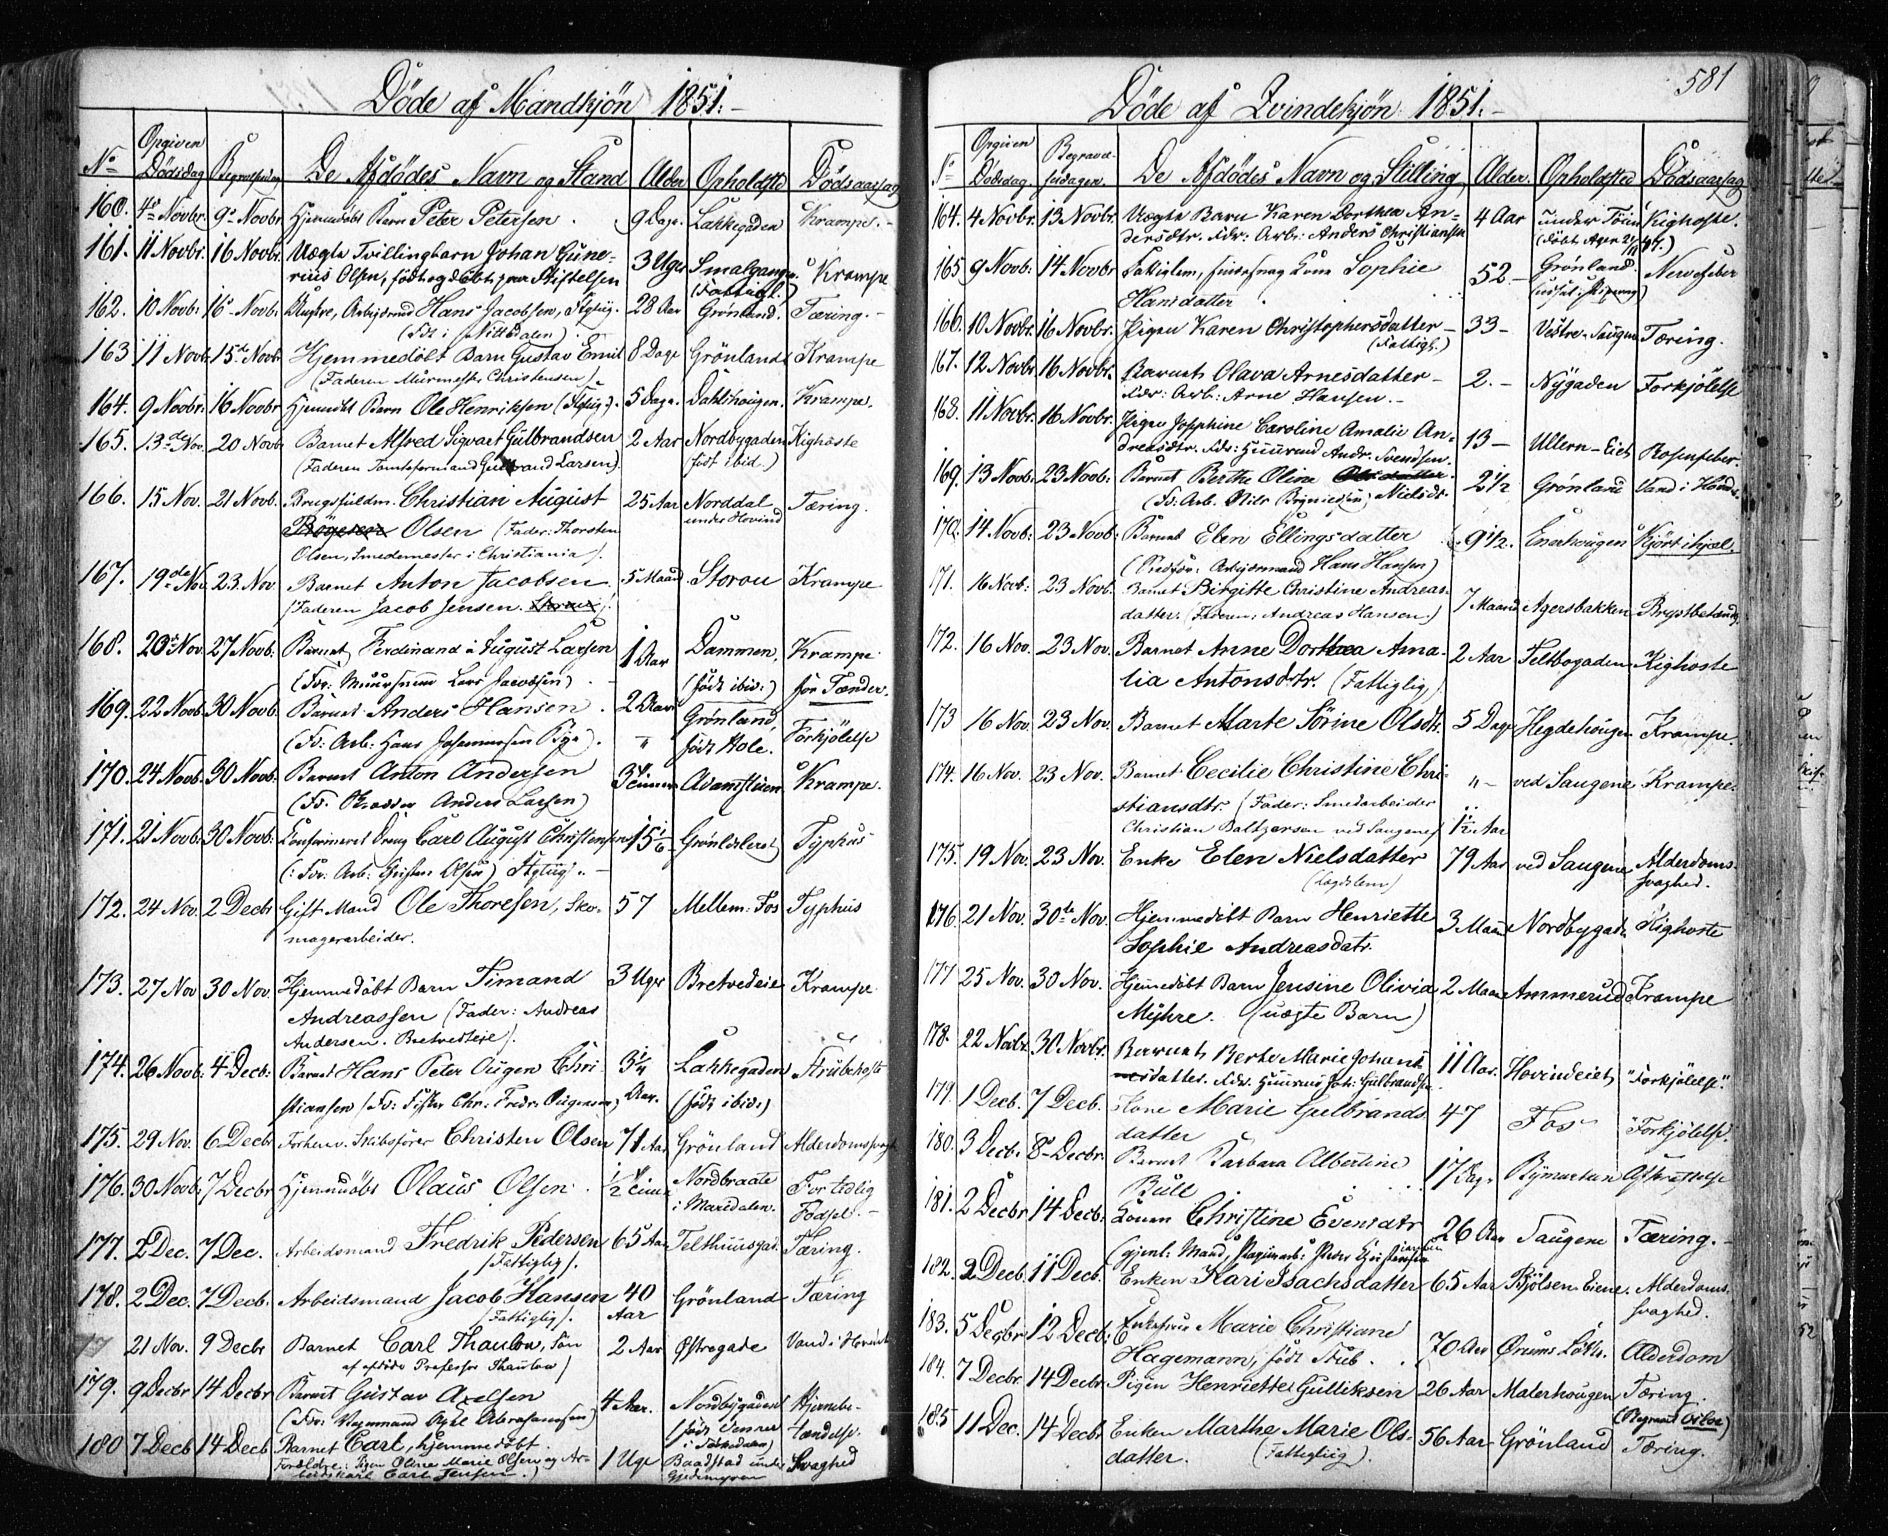 Döde af Mandkjön 1851.
No Opgiven Dödsdag Begravelsesdag De Afdödes Navn og Stand Alder Opholdsted Dödsaarsag
160. 4de Novbr. 9de Novbr. Hjemmedöbt Barn Peter Petersen. 9 Dage. Lakkegaden Krampe.
161. 11 Novbr. 16 Novbr. Uægte Tvillingbarn Johan Gune- 3 Uger Smalgangen. Krampe
rius Olsen, födt og döbt paa Stiftelsen (Fattigl.)
162. 10 Novbr. 16 Novbr. Arbeidsmd Hans Jacobsen, 28 Aar Grönland. Tæring.
(Födt i Nittedalen)
163 11 Novb. 15de Novbr. Hjemmedöbt Barn Gustav Emil 8 Dage Grönland Krampe
(Faderen Murmester Christensen).
164. 9 Novbr. 16 Novbr Hjemmedöbt Barn Ole Henriksen 5 Dage. Dahlshougen. Krampe.
165. 13de Nov. 20 Novb. Barnet Alfred Sigvart Gulbrandsen 2 Aar Nordbygaden Kighoste
(Faderen Tomteformand Gulbrand Larsen). (födt ibid.)
166. 15 Nov. 21 Novb. Brugsfuldm. Christian August 25 Aar Norddal Tæring.
Olsen (Fader: Thorsten under Hovind
Olsen, Smedemester i Christiania).
167. 19de Nov. 23. Nov. Barnet Anton Jacobsen. 5 Maand Storou Krampe
(Faderen Jacob Jensen.
168. 20de Nov. 27 Novb: Barnet Ferdinand August Larsen 1 Aar Dammen, Krampe
(Fdr: Muursvend Lars Jacobsen) (födt ibid:) for Tænder.
169. 22 Novb. 30 Novb. Barnet Anders Hansen. 2 Aar Grönland, Forkjölelse
(Fdr: Arb: Hans Johannesen). födt Hole.
170. 24 Novb. 30 Novb. Barnet Anton Andersen 3 Timer Adamstuen Krampe.
(Fdr. Anders Larsen)
171. 21 Novb: 30 Novb: Confirmeret Dreng Carl August Christensen 15 1/6 Grönlsleret Typhus
(: Fdr: Arb: Christen Olsen)
172. 24 Nov. 2 Decbr Gift Mand Ole Thoresen, Sko- 57 Mellem: Fos Typhus
magerarbeider.
173. 27 Nov 30 Nov. Hjemmedöbt Barn Timand 3 Uger Bretvedeie Krampe
Andreassen (Fader: Andreas
Andersen. Bretvedteie).
174. 26 Novb: 4 Decb: Barnet Hans Peter Augen Chri- 3 1/4 Lakkegaden Strubehoste
stiansen (Fdr: Fisker Chr: Fredr: Augensen) Aar. (födt ibid:)
175. 29 Nov. 6 Decbr Forhenv. Skibsförer Christen Olsen 71 Aar Grönland Alderdomssvagh
176. 30 Novb: 7 Decbr Hjemmedöbt Olaus Olsen. 1/2 Time Nordbraate For tidlig
i Maridalen. Fødsel.
177. 2 Dec. 7 Dec. Arbeidsmand Fredrik Pedersen 65 Aar Telthuusgad. Tæring.
(Fattiglig).
178. 2 Dec. 7 Decb. Arbeidsmand Jacob Hansen 40 Grönland Tæring
(Fattiglig). Aar
21 Nov. 9 Decbr Barnet Carl Thaulow, Sön 2 Aar Østregade Vand i Hovedet
af afdöde Professor Thaulow)
179. 9 Decbr 14 Decbr Barnet Gustav Axelsen 4 Aar. Nordbygaden Hjernebe-
(Fdr: Vognmand Axel Abrahamsen) tændelse.
180 7 Decb 14 Decb Barnet Carl, hjemmedöbt. 1 Uge Baadstad under Svaghed
Forældre: Pigen Oline Marie Olsen og Ar- Gjedemyren
beidskarl Carl Jensen.)
581
Döde af Qvindekjön 1851.
No Opgiven Dödsdag. Begravel-sesdagen. De Afdödes Navn og Stilling Alder. Opholdsted Dödsaarsag
164. 4 Novbr. 13 Novbr. Uægte Barn Karen Dorthea An- 4 Aar under Töien Kighoste.
dersdtr. Fdr. Arb: Anders Christiansen
165 9 Novb: 14 Novbr Fattiglem, Sophie 52 - Grönland. Nervefeber
Hansdatter
166. 10 Novbr. 16 Novbr. Pigen Karen Christophersdatter 33 - Vestre-Saugen Tæring.
(Fattigl.)
167. 12 Novbr 16 Novbr. Barnet Olava Arnesdatter 2. - Nygaden Forkjölelse
Fdr: Arb: Arne Hansen.
168. 11 Novbr. 16 Novbr. Pigen Josephine Caroline Amalie An- 13 - Ullern-Eiet Rosenfeber.
dreasdtr. Fdr: Huusmand Andr. Svendsen.
169. 13 Novb: 23 Novb: Barnet Berthe Olina Nielsdr. 2 1/2 Grönland Vand i Hovedet
170. 14 Novb: 23 Novb: Barnet Elen Ellingsdatter 9 1/2. Enerhougen Kjört ihjel.
(Stedfar: Arbeidsmand Hans Hansen)
171. 16 Novb: 23 Novb. Barnet Birgitte Christine Andreas- 7 Maand Agersbakken Brystbetændls
datter. (Faderen: Andreas Hansen.)
172. 16 Nov. 23 Nov. Barnet Anne Dorthea Ama- 2 Aar Feltbogaden Kighoste
lia Antonsdtr. (Fattiglig).
173 16 Nov. 23 Nov. Barnet Marte Sörine Olsdtr. 5 Dage Hegdehougen Krampe.
174. 16 Nov. 23 Nov. Barnet Cecilie Christine Chri- "- ved Saugene Krampe.
stiansdtr. (Fader: Smedarbeider
Christian Baltzersen ved Saugene) 1 1/2 Aar
175. 19 Nov. 23 Nov. Enke Elen Nielsdatter 79 Aar ved Saugene Alderdoms-
(Lagdslem) svaghed.
176. 21 Nov. 30te Nov. Hjemmedöbt Barn Henriette 3 Maan Nordbygad. Kighoste
Sophie Andreasdatr.
177 25 Nov. 30 Nov. Hjemmedöbt Barn Jensine Olivia 2 Maan Ammerud Krampe
Myhre. (uægte Barn)
178. 22 Novbr. 30 Novbr. Barnet Berte Marie Johann- 11 Aar. Hovindeiet "Forkjölelse".
esdatter. Fdr. Huusmd Joh: Gulbrandsen
179. 1 Decb. 7 Decb. Kone Marie Gulbrands 47 Fos Forkjölelse.
datter
180. 3 Decb. 8de Decbr. Barnet Barbara Albertine 17 Dage Bymarken Afkræftelse
Bull
181. 2 Decbr 14 Decb: Konen Christine Evensdtr 26 Aar Saugene Tæring.
182. 2 Decb. 11 Decb. Enken Kari Isachsdatter 65 Aar Bjölsen-Eiene Alderdoms-
svaghed.
183. 5 Decbr 12 Decb: Marie Christiane 70 Aar Ørums Lökke. Alderdom
Hagemann, födt Stub.
184. 7 Decbr 14 Decbr Pigen Henriette Gulliksen 26 Aar Malerhougen Tæring.
185 11 Dec. 14 Decbr Enken Marthe Marie Ols- 56 Aar Grönland Tæring.
datter. (Fattiglig).